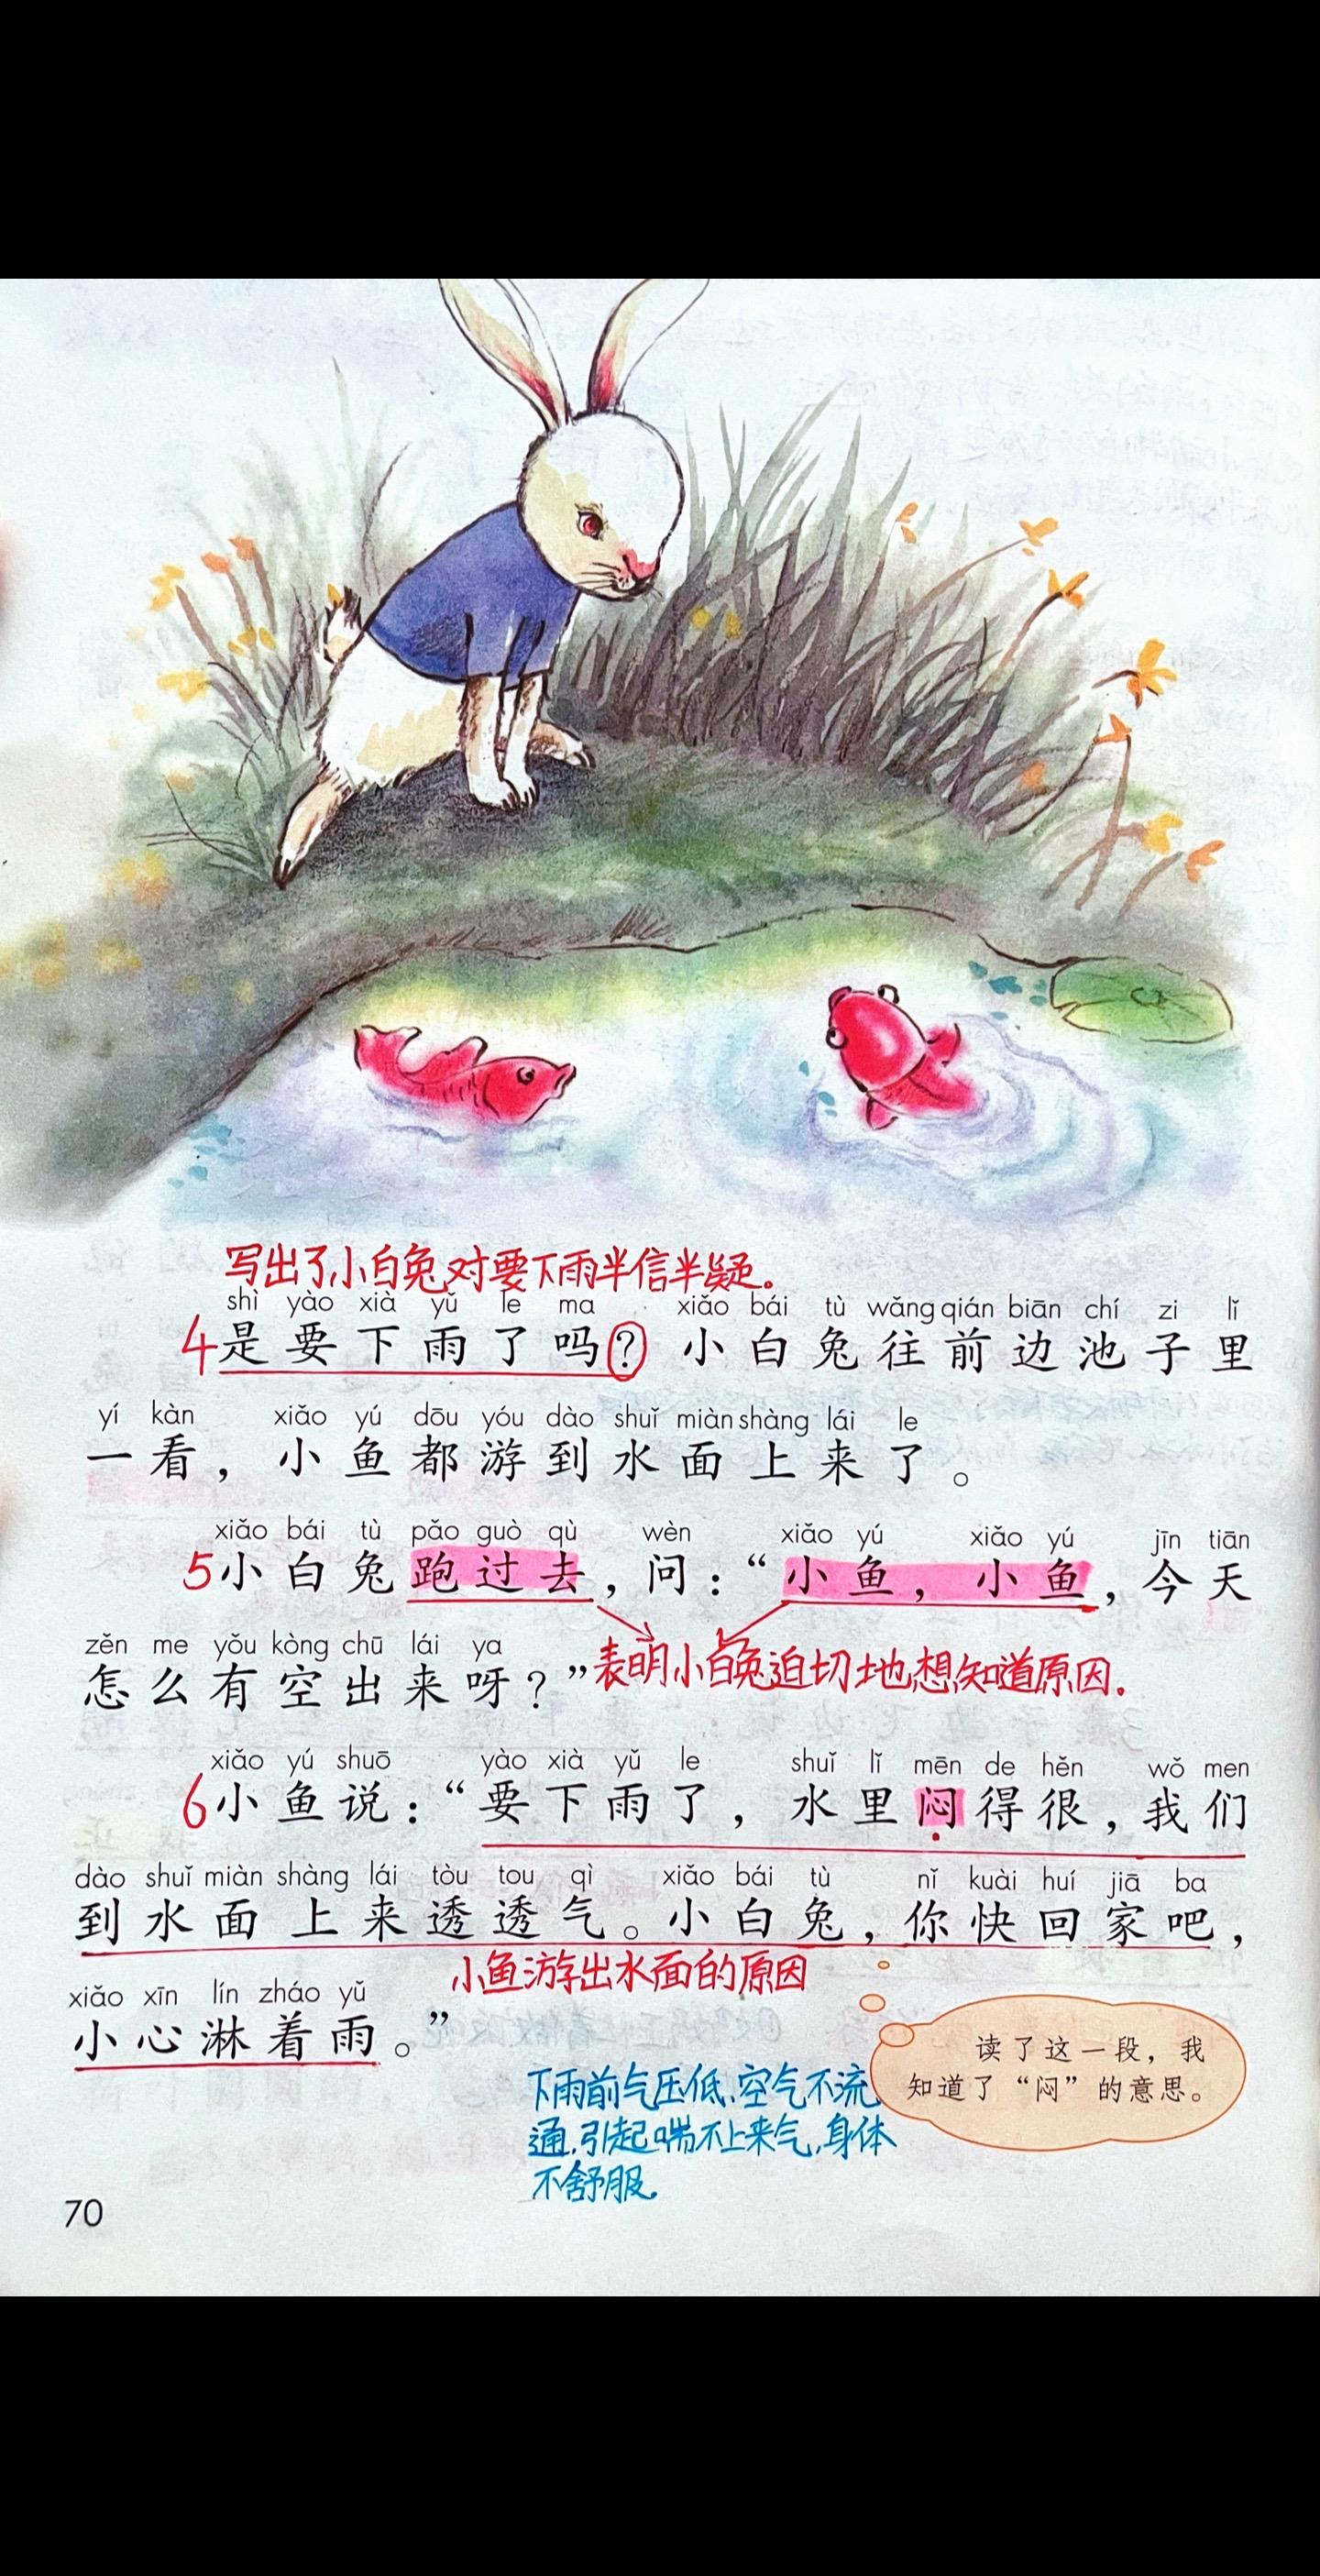 写出了小白兔对要下雨半信半疑。
shì yào xià yǔ le ma xiǎo bái tù wǎng qián biān chí zi lǐ
4是要下雨了吗？小白兔往前边池子里
yí kàn xiǎo yú dōu yóu dào shuǐ miàn shàng lái le
一看，小鱼都游到水面上来了。
xiǎo bái tù pǎo guò qù wèn xiǎo yú xiǎo yú jīn tiān
5小白兔跑过去，问：“小鱼，小鱼，今天
zěn me yǒu kòng chū lái ya
怎么有空出来呀？”
表明小白兔迫切地想知道原因。
xiǎo yú shuō yào xià yǔ le shuǐ lǐ mēn de hěn wǒ men
6小鱼说：“要下雨了，水里闷得很，我们
dào shuǐ miàn shàng lái tòu tou qì xiǎo bái tù nǐ kuài huí jiā ba
到水面上来透透气。小白兔，你快回家吧，
小鱼游出水面的原因
xiǎo xīn lín zháo yǔ
小心淋着雨。”
读了这一段，我
知道了“闷”的意思。
下雨前气压低、空气不流
通，引起喘不上来气，身体
不舒服。
70